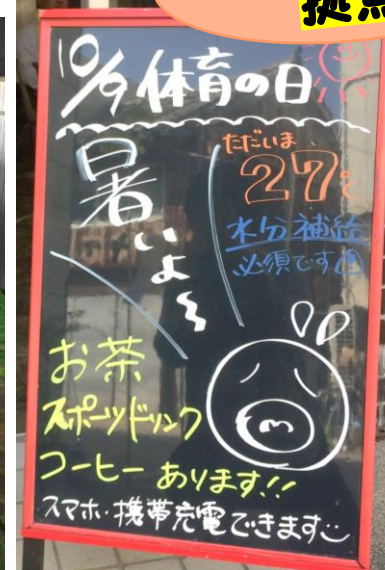 拠点
10/9 体育の日
ただいま
27℃
暑いよ〜
水分補給
必須です
お茶
スポーツドリンク
コーヒー あります!!
スマホ・携帯充電できます